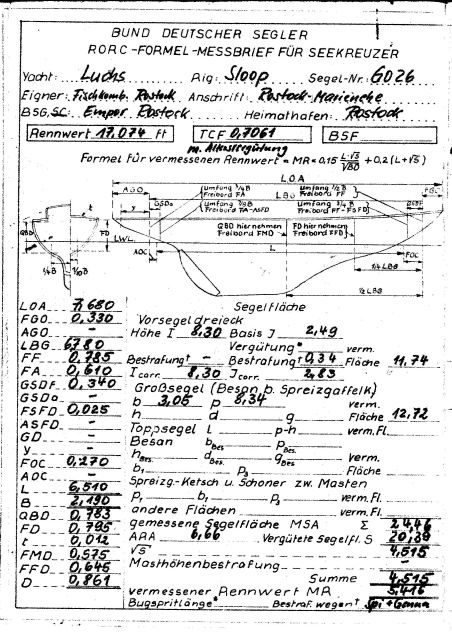 BUND DEUTSCHER SEGLER
RORC-FORMEL-MESSBRIEF FÜR SEEKREUZER
Yacht: Luchs Rig: Sloop Segel-Nr. GO 26
Eigner: Fischkomb. Rostock Anschrift: Rostock-Marienehe
BSG, SC: Empor Rostock Heimathafen: Rostock
Rennwert 17,074 ft TCF 0,7061 BSF
m. Altersvergütung
Formel für vermessenen Rennwert = MR = 0,15 L·√S / √BD + 0,2 (L+√S)
L.O.A
AGO LBG FGO
Umfang 3/4 B Umfang 1/2 B
Freibord FA Freibord FF
y GSDa GSDF
Umfang 7/8 B Umfang 3/4 B
Freibord FA-ASFD Freibord FF-FSFD
t
QBD FD
QBD hier nehmen FD hier nehmen
Freibord FMD Freibord FFD
LWL
AOC L FOC
1/4 B 1/10 B
1/4 LBG
1/2 LBG
LOA 7,680 Segelfläche
FGO 0,330 Vorsegeldreieck
AGO - Höhe I 8,30 Basis J 2,49
LBG 6,780 Vergütung* verm.
FF 0,785 Bestrafung† - Bestrafung† 0,34 Fläche 11,74
FA 0,610 I corr. 8,30 J corr. 2,83
GSDF 0,340 Großsegel (Besan b. Spreizgaffelk)
GSDa - b 3,05 p 8,34 verm.
FSFD 0,025 h d g Fläche 12,72
ASFD - Toppsegel l p-h verm. Fl.
GD - Besan b Bes. p Bes.
y - h Bes. d Bes. g Bes. verm.
FOC 0,270 b₁ p₃ Fläche -
AOC - Spreizg.-Ketsch u. Schoner zw. Masten
L 6,510 p₁ b₁ p₃ verm. Fl.
B 2,190 andere Flächen verm. Fl.
QBD 0,783 gemessene Segelfläche MSA Σ 24,46
FD 0,795 ARA 6,66 Vergütete Segelfl. S 20,39
t 0,012 √S 4,515
FMD 0,575 Masthöhenbestrafung -
FFD 0,645 Summe 4,515
D 0,861 vermessener Rennwert MR 5,416
Bugsprietlänge* Bestraf. wegen† Spi + Genua